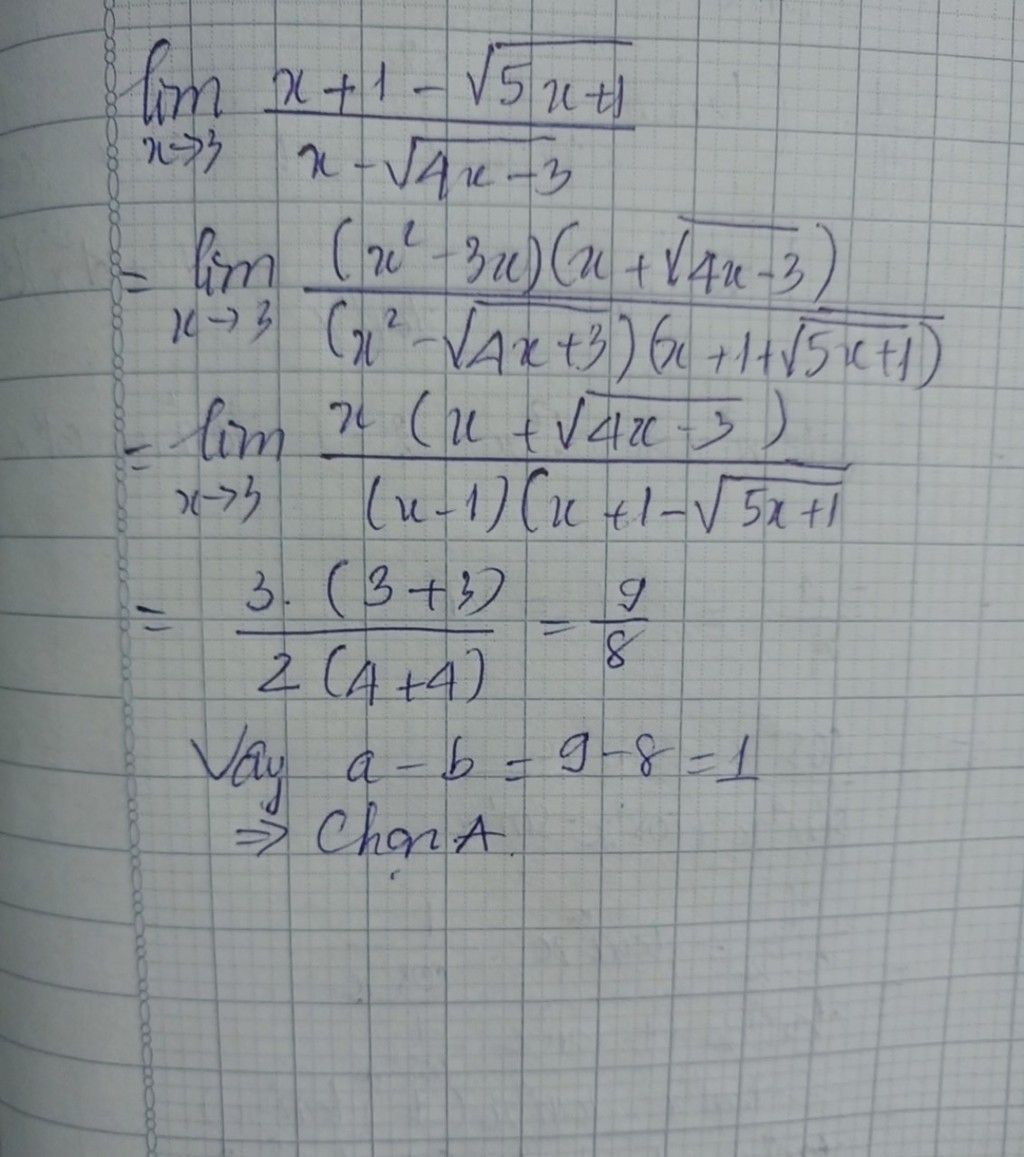 lim x+1-√5x+1
x→3 x-√4x-3
= lim (x²-3x)(x+√4x-3)
x→3 (x²-√4x+3)(x+1+√5x+1)
= lim x(x+√4x-3)
x→3 (x-1)(x+1-√5x+1
= 3.(3+3) = 9
2(4+4) 8
Vay a-b=9-8=1
⇒ Chọn A.